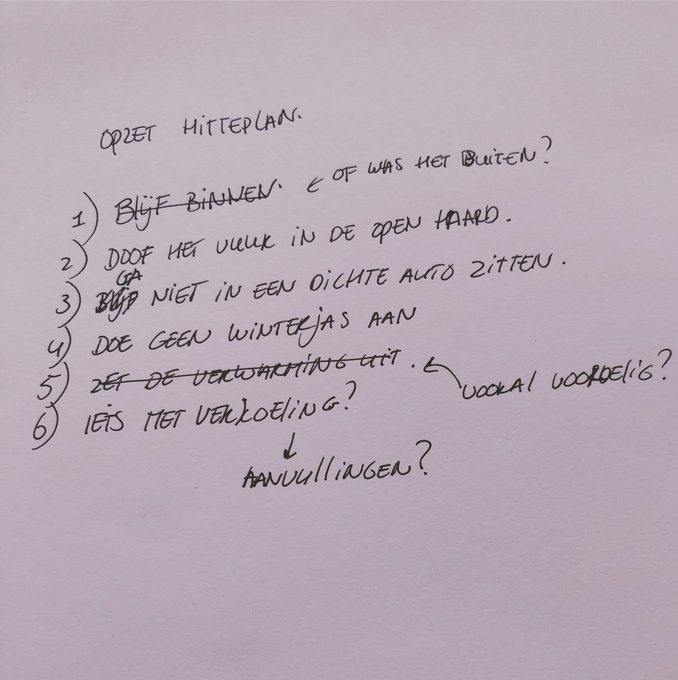 OPZET HITTEPLAN.
1) BLIJF BINNEN. ← OF WAS HET BUITEN?
2) DOOF HET VUUR IN DE OPEN HAARD.
3) BLIJF GA NIET IN EEN DICHTE AUTO ZITTEN.
4) DOE GEEN WINTERJAS AAN
5) ZET DE VERWARMING UIT. ← VOORAL VOORDELIG?
6) IETS MET VERKOELING?
↓
AANVULLINGEN?